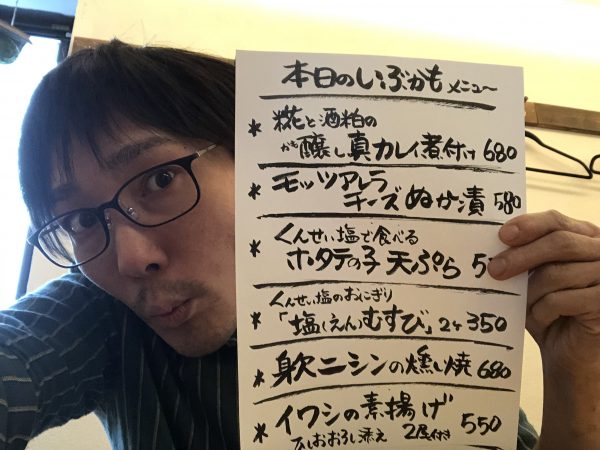 本日のいぶかもメニュ〜
* 糀と酒粕の
が醸し真カレイ煮付け 680
* モッツアレラ
チーズぬか漬 580
* くんせい塩で食べる
ホタテの子天ぷら 5
* くんせい塩のおにぎり
「塩(えん)むすび」2ヶ 350
* 身欠ニシンの燻し焼 680
* イワシの素揚げ 550
おろし添え 2尾付き